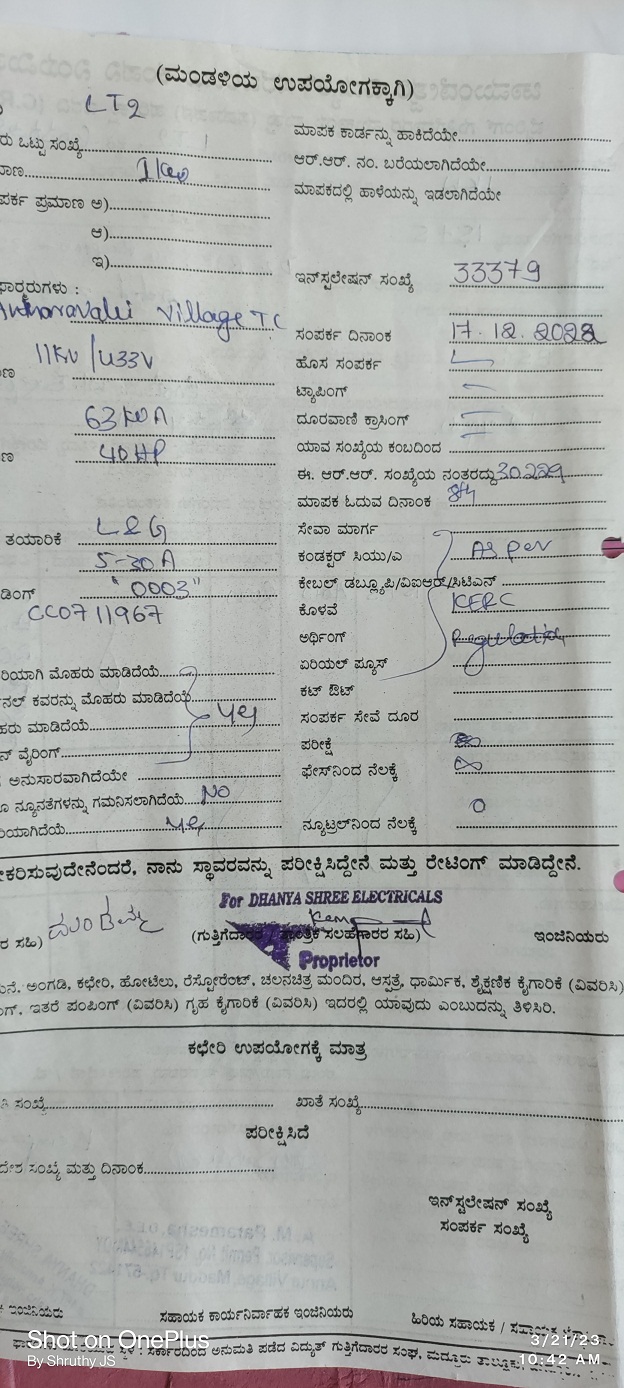 (ಮಂಡಳಿಯ ಉಪಯೋಗಕ್ಕಾಗಿ)
LT2
ರು ಒಟ್ಟು ಸಂಖ್ಯೆ 1
ಮಾಪಕ ಕಾರ್ಡನ್ನು ಹಾಕಿದೆಯೇ
ಆರ್.ಆರ್. ನಂ. ಬರೆಯಲಾಗಿದೆಯೇ
ಮಾಪಕದಲ್ಲಿ ಹಾಳೆಯನ್ನು ಇಡಲಾಗಿದೆಯೇ
ಪರ್ಕ ಪ್ರಮಾಣ ಅ)
ಆ)
ಇ)
Village TC
11KV / 433V
63 KVA
40 HP
ತಯಾರಿಕೆ L&G
5-30A
ಡಿಂಗ್ "0003"
CC0711967
ರಿಯಾಗಿ ಮೊಹರು ಮಾಡಿದೆಯೆ
ನಲ್ ಕವರನ್ನು ಮೊಹರು ಮಾಡಿದೆಯೆ
ಹರು ಮಾಡಿದೆಯೇ Yes
ನ್ ವೈರಿಂಗ್
ಅನುಸಾರವಾಗಿದೆಯೇ
ನ್ಯೂನತೆಗಳನ್ನು ಗಮನಿಸಲಾಗಿದೆಯೆ NO
ರಿಯಾಗಿದೆಯೆ Yes
ಇನ್‌ಸ್ಟಲೇಷನ್ ಸಂಖ್ಯೆ 33379
ಸಂಪರ್ಕ ದಿನಾಂಕ 17.12.2022
ಹೊಸ ಸಂಪರ್ಕ
ಟ್ಯಾಪಿಂಗ್
ದೂರವಾಣಿ ಕ್ರಾಸಿಂಗ್
ಯಾವ ಸಂಖ್ಯೆಯ ಕಂಬದಿಂದ
ಈ. ಆರ್.ಆರ್. ಸಂಖ್ಯೆಯ ನಂತರದ್ದು
ಮಾಪಕ ಓದುವ ದಿನಾಂಕ 8th
ಸೇವಾ ಮಾರ್ಗ
ಕಂಡಕ್ಟರ್ ಸಿಯು/ಎ As per
ಕೇಬಲ್ ಡಬ್ಲ್ಯೂಪಿ/ವಿಐಆರ್/ಸಿಟಿಎಸ್
ಕೊಳವೆ KERC
ಅರ್ಥಿಂಗ್ Regulation
ಏರಿಯಲ್ ಫ್ಯೂಸ್
ಕಟ್ ಔಟ್
ಸಂಪರ್ಕ ಸೇವೆ ದೂರ
ಪರೀಕ್ಷೆ ∞
ಫೇಸ್‌ನಿಂದ ನೆಲಕ್ಕೆ ∞
ನ್ಯೂಟ್ರಲ್‌ನಿಂದ ನೆಲಕ್ಕೆ 0
ಕರಿಸುವುದೇನೆಂದರೆ, ನಾನು ಸ್ಥಾವರವನ್ನು ಪರೀಕ್ಷಿಸಿದ್ದೇನೆ ಮತ್ತು ರೇಟಿಂಗ್ ಮಾಡಿದ್ದೇನೆ.
For DHANYA SHREE ELECTRICALS
ರ ಸಹಿ) (ಗುತ್ತಿಗೆದಾರರ ಸಲಹೆಗಾರರ ಸಹಿ) ಇಂಜಿನಿಯರು
Proprietor
ನೆ, ಅಂಗಡಿ, ಕಛೇರಿ, ಹೋಟೆಲು, ರೆಸ್ಟೋರೆಂಟ್, ಚಲನಚಿತ್ರ ಮಂದಿರ, ಆಸ್ಪತ್ರೆ, ಧಾರ್ಮಿಕ, ಶೈಕ್ಷಣಿಕ ಕೈಗಾರಿಕೆ (ವಿವರಿಸಿ)
ಗ್, ಇತರೆ ಪಂಪಿಂಗ್ (ವಿವರಿಸಿ) ಗೃಹ ಕೈಗಾರಿಕೆ (ವಿವರಿಸಿ) ಇದರಲ್ಲಿ ಯಾವುದು ಎಂಬುದನ್ನು ತಿಳಿಸಿರಿ.
ಕಛೇರಿ ಉಪಯೋಗಕ್ಕೆ ಮಾತ್ರ
ಸಂಖ್ಯೆ ಖಾತೆ ಸಂಖ್ಯೆ
ಪರೀಕ್ಷಿಸಿದೆ
ದೇಶ ಸಂಖ್ಯೆ ಮತ್ತು ದಿನಾಂಕ
ಇನ್‌ಸ್ಟಲೇಷನ್ ಸಂಖ್ಯೆ
ಸಂಪರ್ಕ ಸಂಖ್ಯೆ
ಇಂಜಿನಿಯರು ಸಹಾಯಕ ಕಾರ್ಯನಿರ್ವಾಹಕ ಇಂಜಿನಿಯರು ಹಿರಿಯ ಸಹಾಯಕ /
ಸರ್ಕಾರದಿಂದ ಅನುಮತಿ ಪಡೆದ ವಿದ್ಯುತ್ ಗುತ್ತಿಗೆದಾರರ ಸಂಘ, ಮದ್ದೂರು ತಾಲ್ಲೂಕು
Shot on OnePlus
By Shruthy JS
3/21/23
10:42 AM